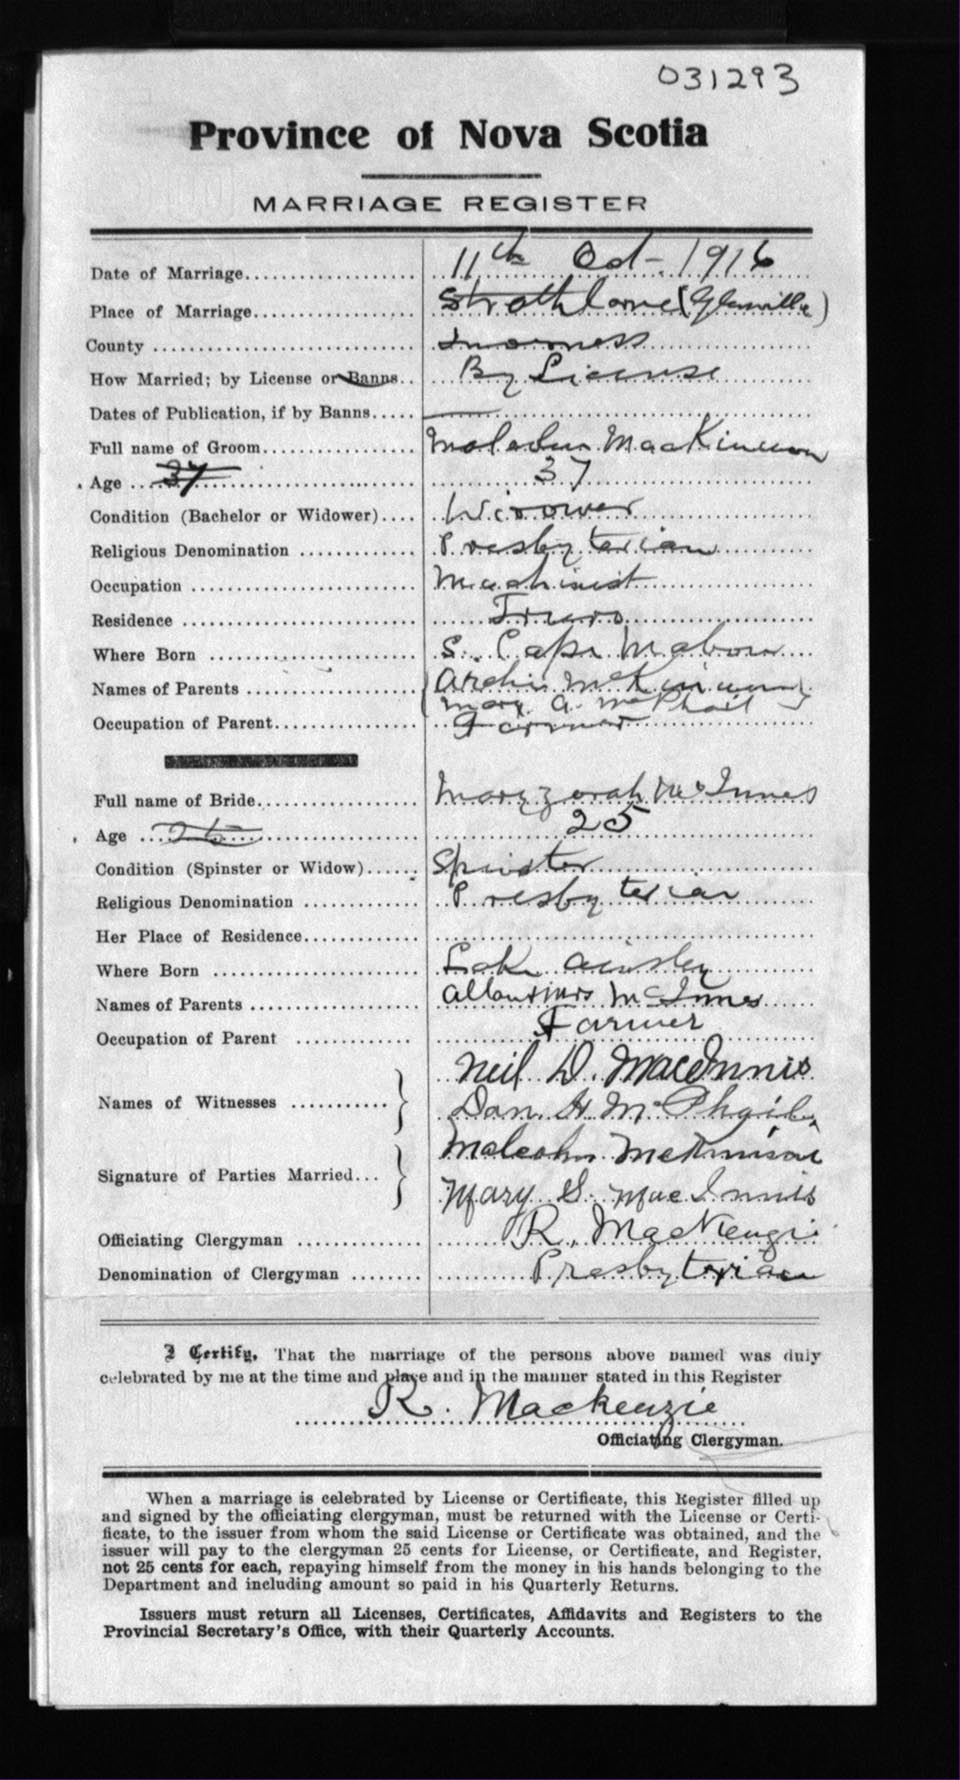 031293
Province of Nova Scotia
MARRIAGE REGISTER
Date of Marriage.................... 11th Oct- 1916
Place of Marriage................... Strathlorne (Glenville)
County ............................. Inverness
How Married; by License or Banns.. By License
Dates of Publication, if by Banns.....
Full name of Groom.................. MacKinnon
Age ...37... 37
Condition (Bachelor or Widower).... Widower
Religious Denomination ............. Presbyterian
Occupation ......................... Machinist
Residence .......................... Truro
Where Born ......................... S. Cape Mabou
Names of Parents ................... Archie McKinnon
Mary A. McPhail
Occupation of Parent................ Farmer
Full name of Bride.................. McInnes
Age ... 25
Condition (Spinster or Widow)...... Spinster
Religious Denomination ............. Presbyterian
Her Place of Residence..............
Where Born ......................... Lake Ainsley
Names of Parents ................... McInnes
Occupation of Parent ............... Farmer
Names of Witnesses ............ Neil D. MacInnis
Dan H McPhail
Signature of Parties Married... Malcolm McKinnon
Mary S. MacInnis
Officiating Clergyman .............. R. MacKenzie
Denomination of Clergyman ........ Presbyterian
I Certify, That the marriage of the persons above named was duly
celebrated by me at the time and place and in the manner stated in this Register
R. Mackenzie
Officiating Clergyman.
When a marriage is celebrated by License or Certificate, this Register filled up
and signed by the officiating clergyman, must be returned with the License or Certi-
ficate, to the issuer from whom the said License or Certificate was obtained, and the
issuer will pay to the clergyman 25 cents for License, or Certificate, and Register,
not 25 cents for each, repaying himself from the money in his hands belonging to the
Department and including amount so paid in his Quarterly Returns.
Issuers must return all Licenses, Certificates, Affidavits and Registers to the
Provincial Secretary's Office, with their Quarterly Accounts.